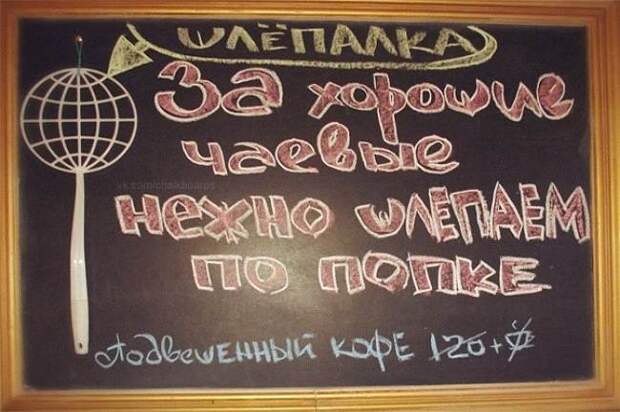 ШЛЁПАЛКА
За хорошие
чаевые
нежно шлепаем
по попке
Подвешенный кофе 120+